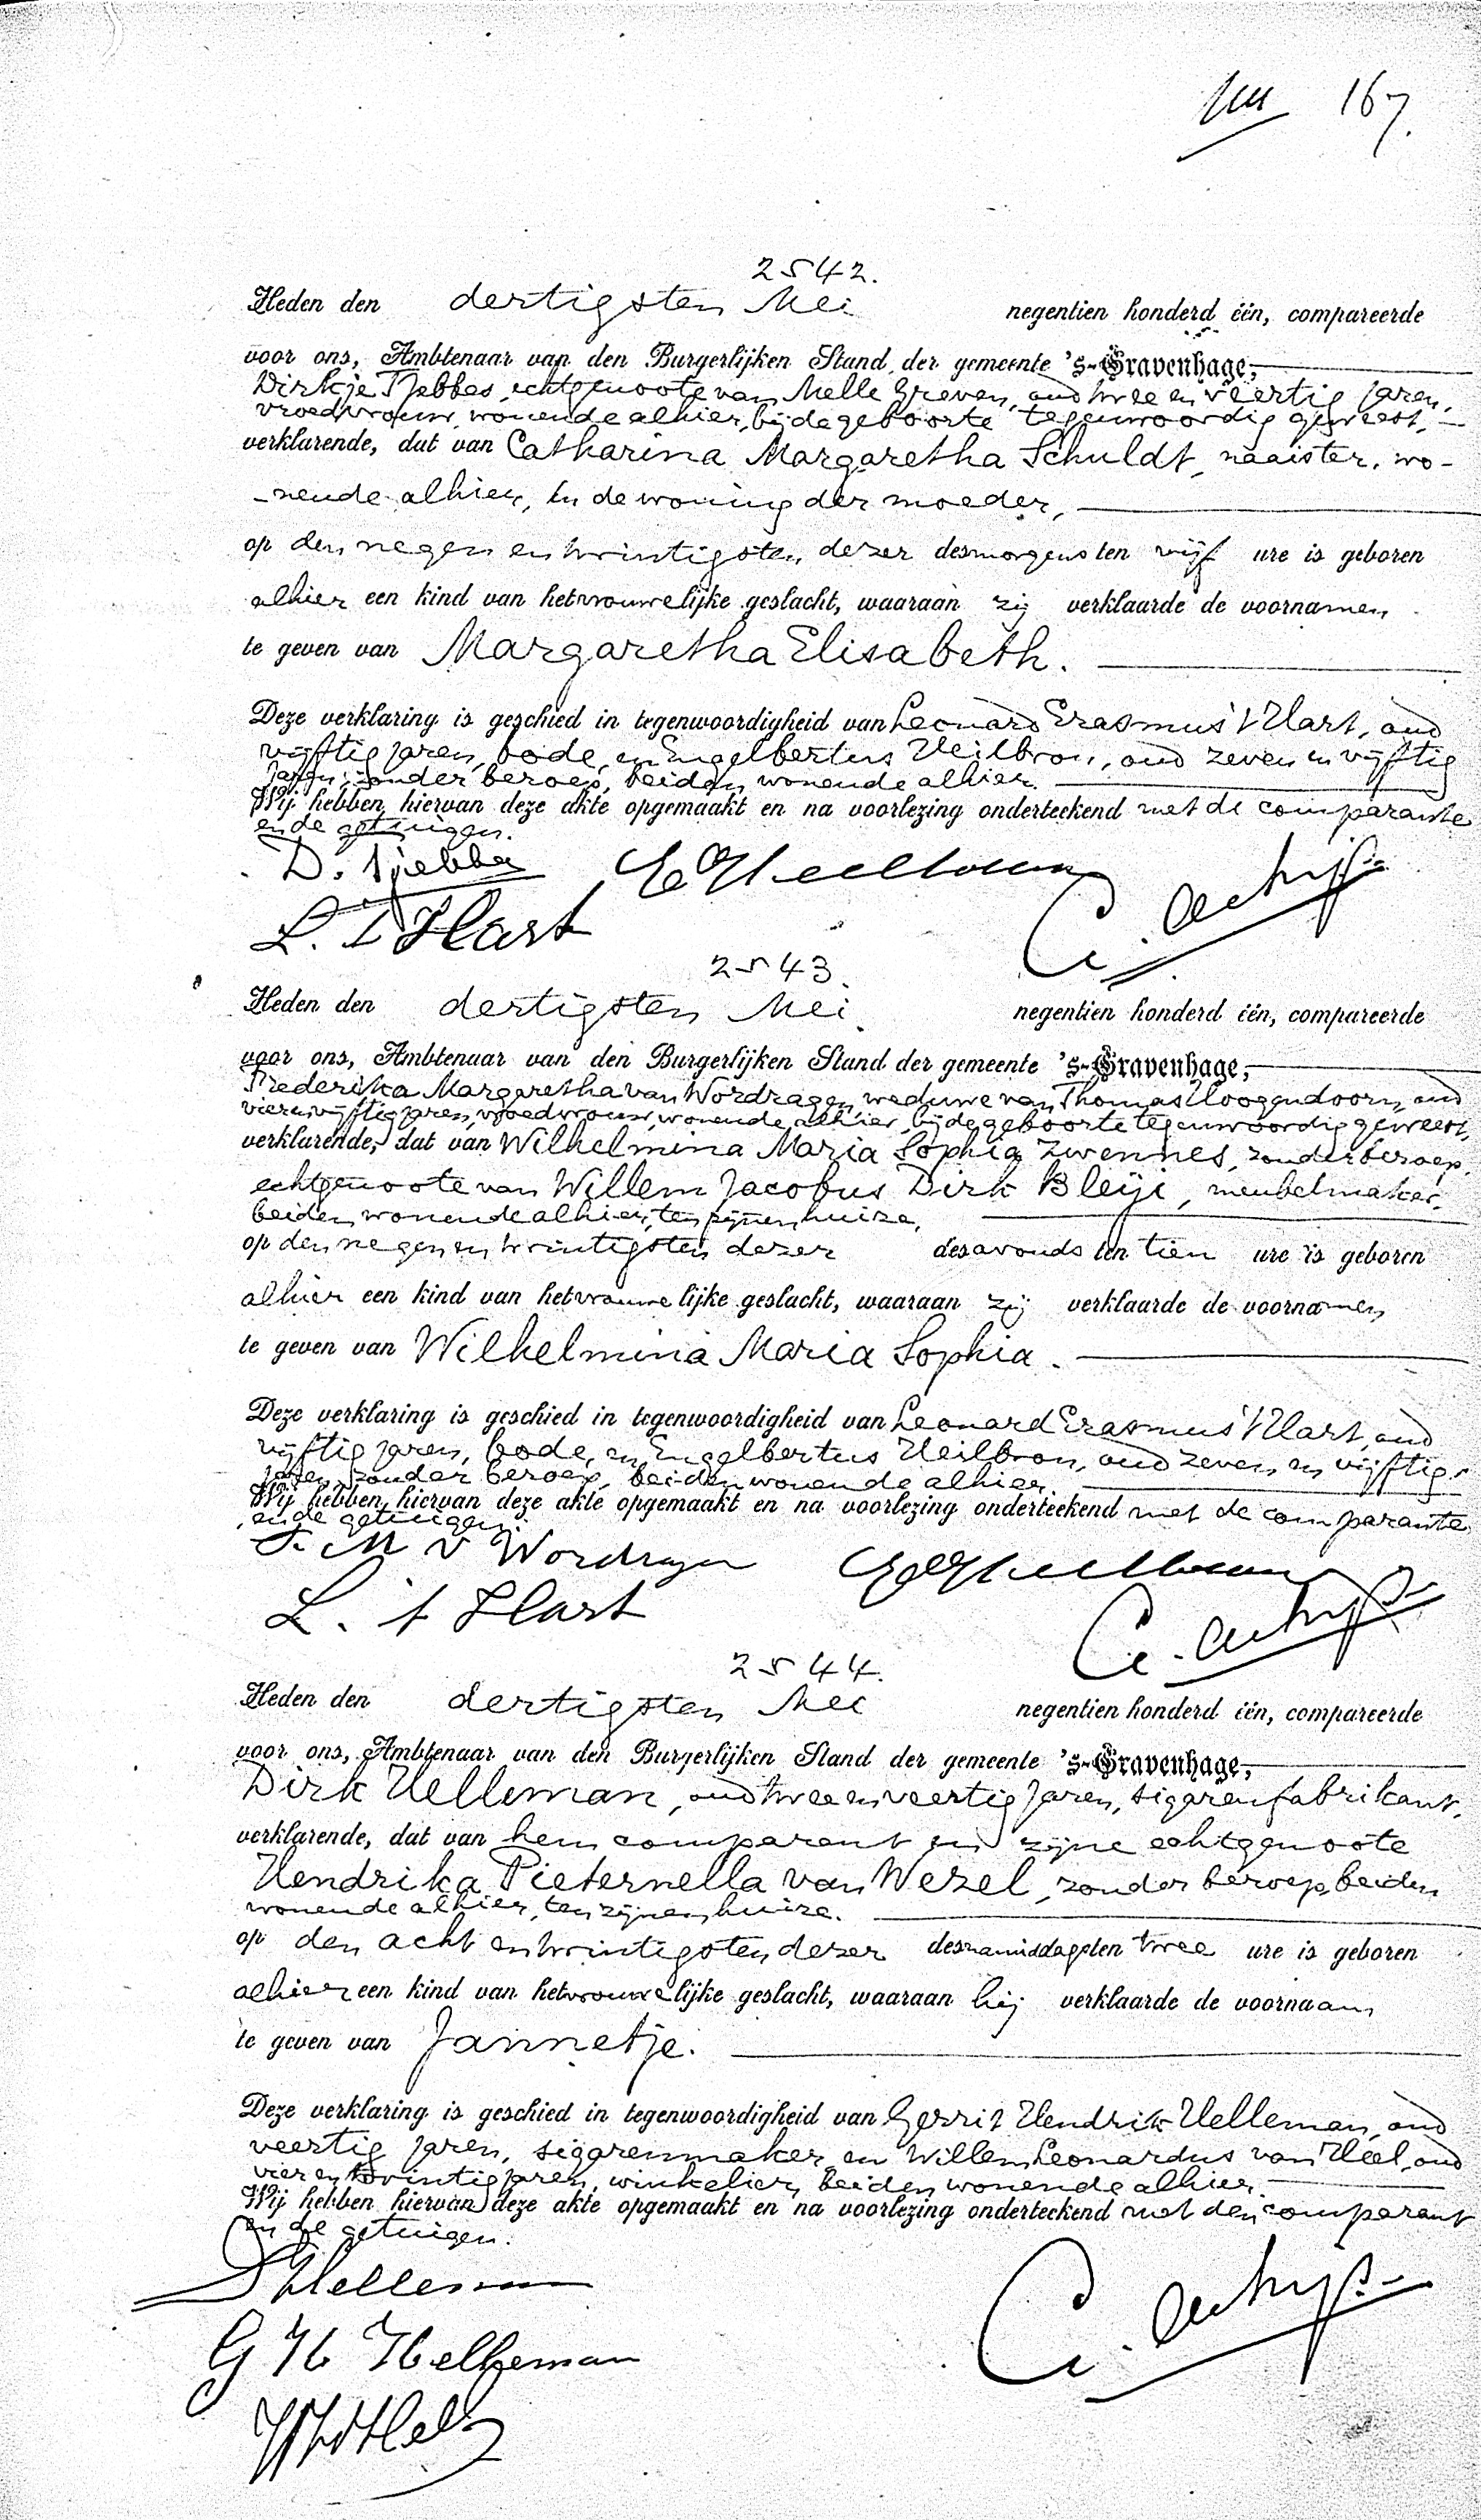 167.
2542.
Heden den dertigsten Mei negentien honderd één, compareerde
voor ons, Ambtenaar van den Burgerlijken Stand der gemeente 's-Gravenhage,
Dirkje Tjebbes, echtgenoote van Melle Greven, oud twee en veertig jaren,
vroedvrouw, wonende alhier, bij de geboorte tegenwoordig geweest,
verklarende, dat van Catharina Margaretha Schuldt, naaister, wo-
-nende alhier, in de woning der moeder,
op den negen en twintigsten dezer des morgens ten vijf ure is geboren
alhier een kind van het vrouwelijke geslacht, waaraan zij verklaarde de voornamen
te geven van Margaretha Elisabeth.
Deze verklaring is geschied in tegenwoordigheid van Leonard Erasmus 't Hart, oud
vijftig jaren, bode, en Engelbertus Heilbron, oud zeven en vijftig
jaren, zonder beroep, beiden wonende alhier.
Wij hebben hiervan deze akte opgemaakt en na voorlezing onderteekend met de comparante
en de getuigen.
D. Tjebbes
L. 't Hart
2543.
Heden den dertigsten Mei negentien honderd één, compareerde
voor ons, Ambtenaar van den Burgerlijken Stand der gemeente 's-Gravenhage,
Frederika Margaretha van Wordragen, weduwe van Thomas Hoogendoorn, oud
vier en vijftig jaren, vroedvrouw, wonende alhier, bij de geboorte tegenwoordig geweest,
verklarende, dat van Wilhelmina Maria Sophia Zwennes, zonder beroep,
echtgenoote van Willem Jacobus Dirk Bleiji, meubelmaker,
beiden wonende alhier, ten zijnen huize,
op den negen en twintigsten dezer des avonds ten tien ure is geboren
alhier een kind van het vrouwelijke geslacht, waaraan zij verklaarde de voornamen
te geven van Wilhelmina Maria Sophia.
Deze verklaring is geschied in tegenwoordigheid van Leonard Erasmus 't Hart, oud
vijftig jaren, bode, en Engelbertus Heilbron, oud zeven en vijftig
jaren, zonder beroep, beiden wonende alhier.
Wij hebben hiervan deze akte opgemaakt en na voorlezing onderteekend met de comparante
en de getuigen.
F. M v Wordragen
L. 't Hart
2544.
Heden den dertigsten Mei negentien honderd één, compareerde
voor ons, Ambtenaar van den Burgerlijken Stand der gemeente 's-Gravenhage,
Dirk Helleman, oud twee en veertig jaren, sigarenfabrikant,
verklarende, dat van hem comparant en zijne echtgenoote
Hendrika Pieternella van Wezel, zonder beroep, beiden
wonende alhier, ten zijnen huize.
op den acht en twintigsten dezer des namiddags ten twee ure is geboren
alhier een kind van het vrouwelijke geslacht, waaraan hij verklaarde de voornaam
te geven van Jannetje.
Deze verklaring is geschied in tegenwoordigheid van Gerrit Hendrik Helleman, oud
veertig jaren, sigarenmaker en Willem Leonardus van Heel, oud
vier en twintig jaren, winkelier, beiden wonende alhier.
Wij hebben hiervan deze akte opgemaakt en na voorlezing onderteekend met den comparant
en de getuigen.
D Helleman
G H Helleman